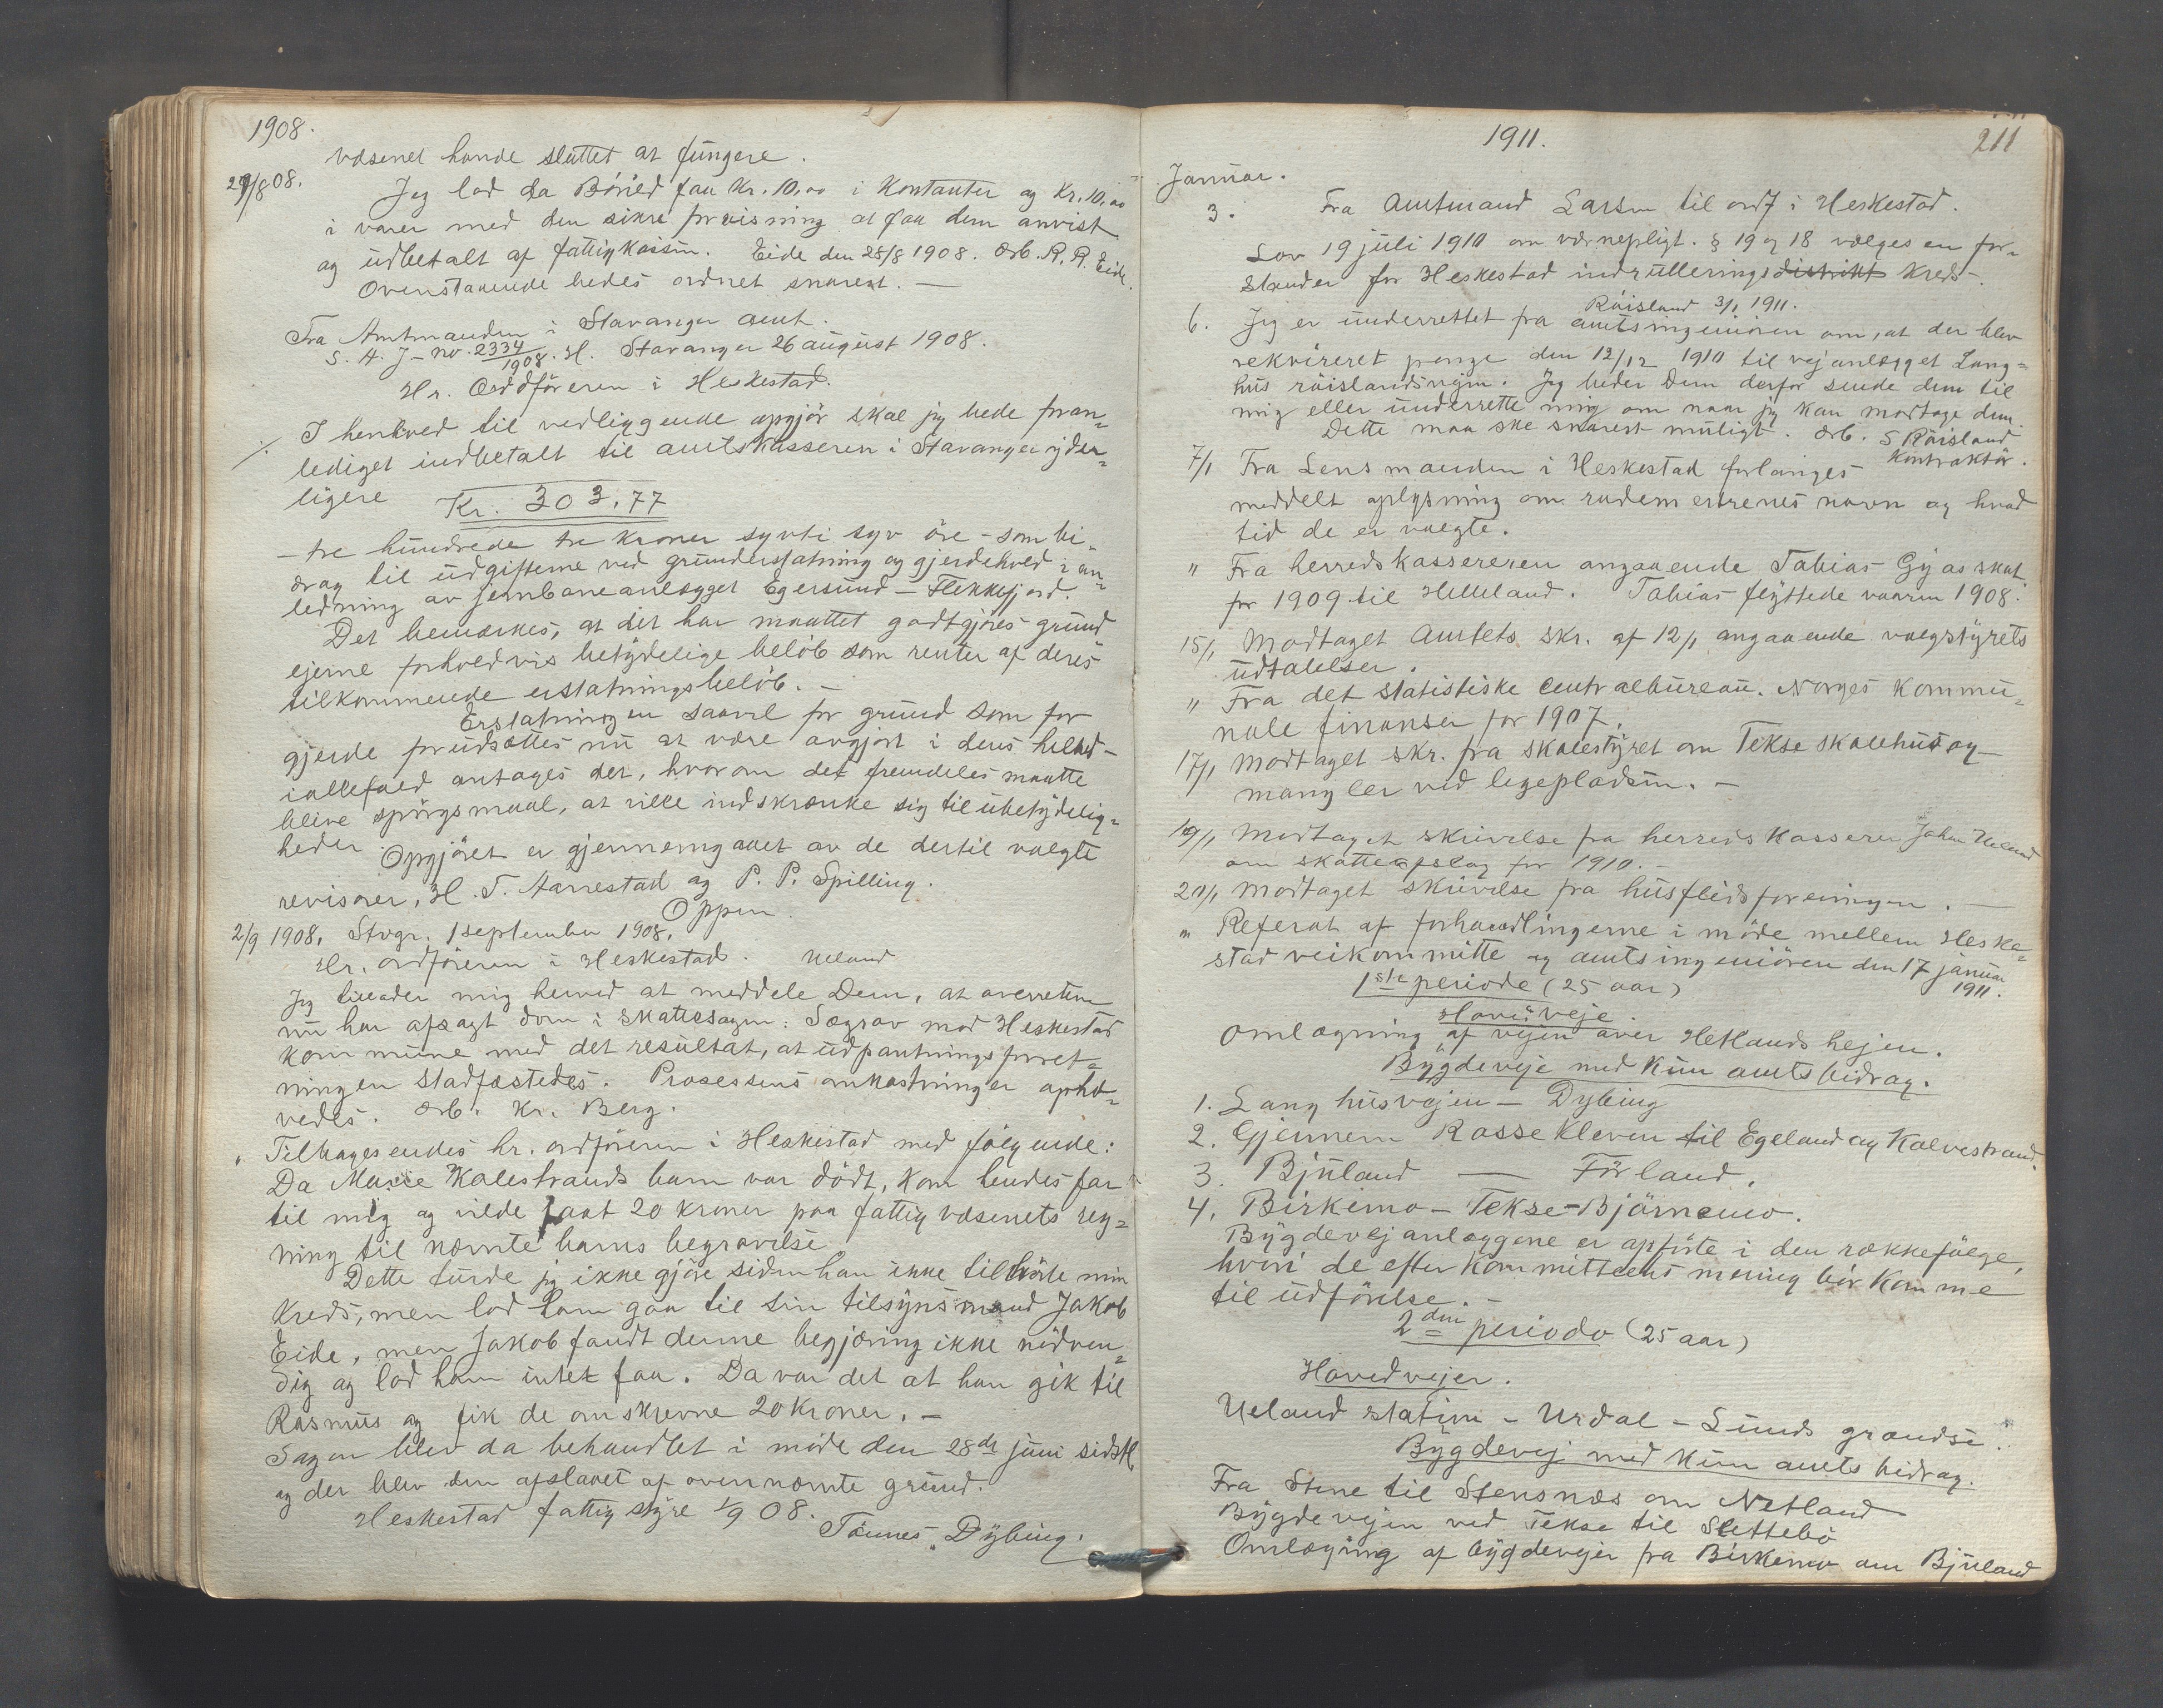 1908.
væsenet havde sluttet at fungere.
29/8 08. Jeg lod da Böiled faa Kr. 10,00 i Kontanter og Kr. 10,00
i varer med den sikre forvisning at faa dem anvist
og udbetalt af fattigkassen. Eide den 28/8 1908. Ærb. R. R. Eide.
Ovenstaaende bedes ordnet snarest. —
Fra Amtmanden i Stavanger amt.
S. A. J – no. 2334/1908. H. Stavanger 26 august 1908.
Hr. Ordföreren i Heskestad.
./. I henhold til vedliggende opgjör skal jeg bede foran=
lediget indbetalt til amtskasseren i Stavanger yder=
ligere Kr. 303,77
– tre hundrede tre kroner sytti syv öre – som bi=
drag til udgifterne ved grunderstatning og gjerdehold i an=
ledning av jernbaneanlægget Egersund – Flekkefjord.
Det bemerkes, at det har maattet godtgjöres grund
ejerne forholdvis betydelige belöb som renter af deres
tilkommende erstatningsbelöb. –
Erstatningen saavel for grund som for
gjerde forudsættes nu at være avgjort i deres helhed –
iallefald antages det, hvorom det fremdeles maatte
blive spörgsmaal, at ville indskrænke sig til ubetydelig=
heder.
Opgjöret er gjennemgaaet av de dertil valgte
revisorer, H. T. Aarrestad og P. P. Spilling.
Oppen.
2/9 1908. Stvgr. 1 september 1908.
Hr. ordföreren i Heskestad. Ueland
Jeg tillader mig herved at meddele Dem, at overretten
nu har afsagt dom i skattesagen: Sægrov mod Heskestad
kommune med det resultat, at udpantningsforret=
ningen stadfæstedes. Prosessens omkostninger ophæ=
vedes. Ærb. Kr. Berg.
„ Tilbagesendes hr. ordföreren i Heskestad med fölgende:
Da Marie Kalestrands barn var dödt, kom hendes far
til mig og vilde faat 20 kroner paa fattigvæsenets reg=
ning til nævnte barns begravelse
Dette turde jeg ikke gjöre siden han ikke tilhörte min
Kreds, men lod ham gaa til sin tilsynsmand Jakob
Eide, men Jakob fandt denne begjæring ikke nödven=
dig og lod ham intet faa. Da var det at han gik til
Rasmus og fik de omskrevne 20 Kroner. –
Sagen blev da behandlet i möde den 28de juni sidstl.
og der blev den afslaaet af ovennævnte grund.
Heskestad fattigstyre 1/9 08.
Tönnes Dybing.
1911.
211
Januar.
3. Fra Amtmand Larsen til ordf i Heskestad.
Lov 19 juli 1910 om værnepligt. § 19 og 18 vælges en for=
stander for Heskestad indrulleringsdistrikt kreds –
Röisland 3/1 1911.
6. Jeg er underrettet fra amtsingeniören om, at der blev
rekvireret penge den 12/12 1910 til vejanlægget Lang=
hus röislandsvejen. Jeg beder Dem derfor sende dem til
mig eller underrette mig om naar jeg kan modtage dem.
Dette maa ske snarest muligt. Ærb. S Röisland
Kontraktör.
7/1 Fra Lensmanden i Heskestad forlanges
meddelt oplysning om rodemesterenes navn og hvad
tid de er valgte.
„ Fra herredskassereren angaaende Tobias Gyas skat
for 1909 til Helleland. Tobias flyttede vaaren 1908.
15/1 Modtaget Amtets skr. af 12/1 angaaende valgstyrets
udtalelser.
„ Fra det statistiske Centralbureau. Norges Kommu=
nale finanser for 1907.
17/1 Modtaget skr. fra skolestyret om Tekse skolehus og
mangler ved legepladsen. –
19/1 Modtaget skrivelse fra herredskasserer John Ueland
om skatteopslag for 1910. –
20/1 Modtaget skrivelse fra husflidsforeningen. —
„ Referat af forhandlingerne i möde mellem Heske=
stad veikommitte og amtsingeniören den 17 januar
1911.
1ste periode (25 aar)
Hovedveje.
Omlægning af vejen over Hetlands hejen.
Bygdeveje med kun amts bidrag.
1. Langhusvejen – Dybing
2. Gjennem Rosse Kleven til Egeland og Kalvestrand.
3. Bjuland — Förland.
4. Birkemo – Tekse – Björnemo.
Bygdevejanlæggene er opförte i den rækkefölge,
hvori de efter Kommitteens mening bör komme
til udförelse. –
2den periode (25 aar)
Hovedvejer.
Ueland station – Urdal – Lunds grændse.
Bygdevej med kun amts bidrag.
Fra Stene til Stensnæs om Netland
Bygdevejen ved Tekse til Slettebö
Omlægning af bygdevejen fra Birkemo om Bjuland